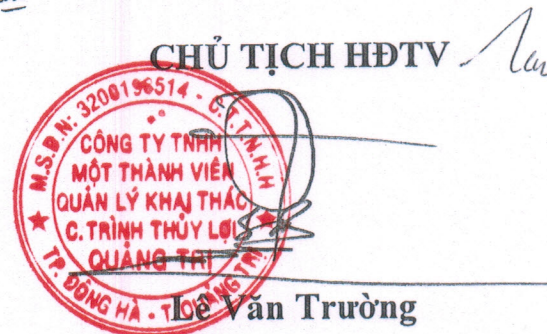 CHỦ TỊCH HĐTV
M.S.D.N: 3200196514 - C.T.T.N.H.H
CÔNG TY TNHH
MỘT THÀNH VIÊN
QUẢN LÝ KHAI THÁC
C. TRÌNH THỦY LỢI
QUẢNG TRỊ
TP. ĐÔNG HÀ - T. QUẢNG TRỊ
Lê Văn Trường